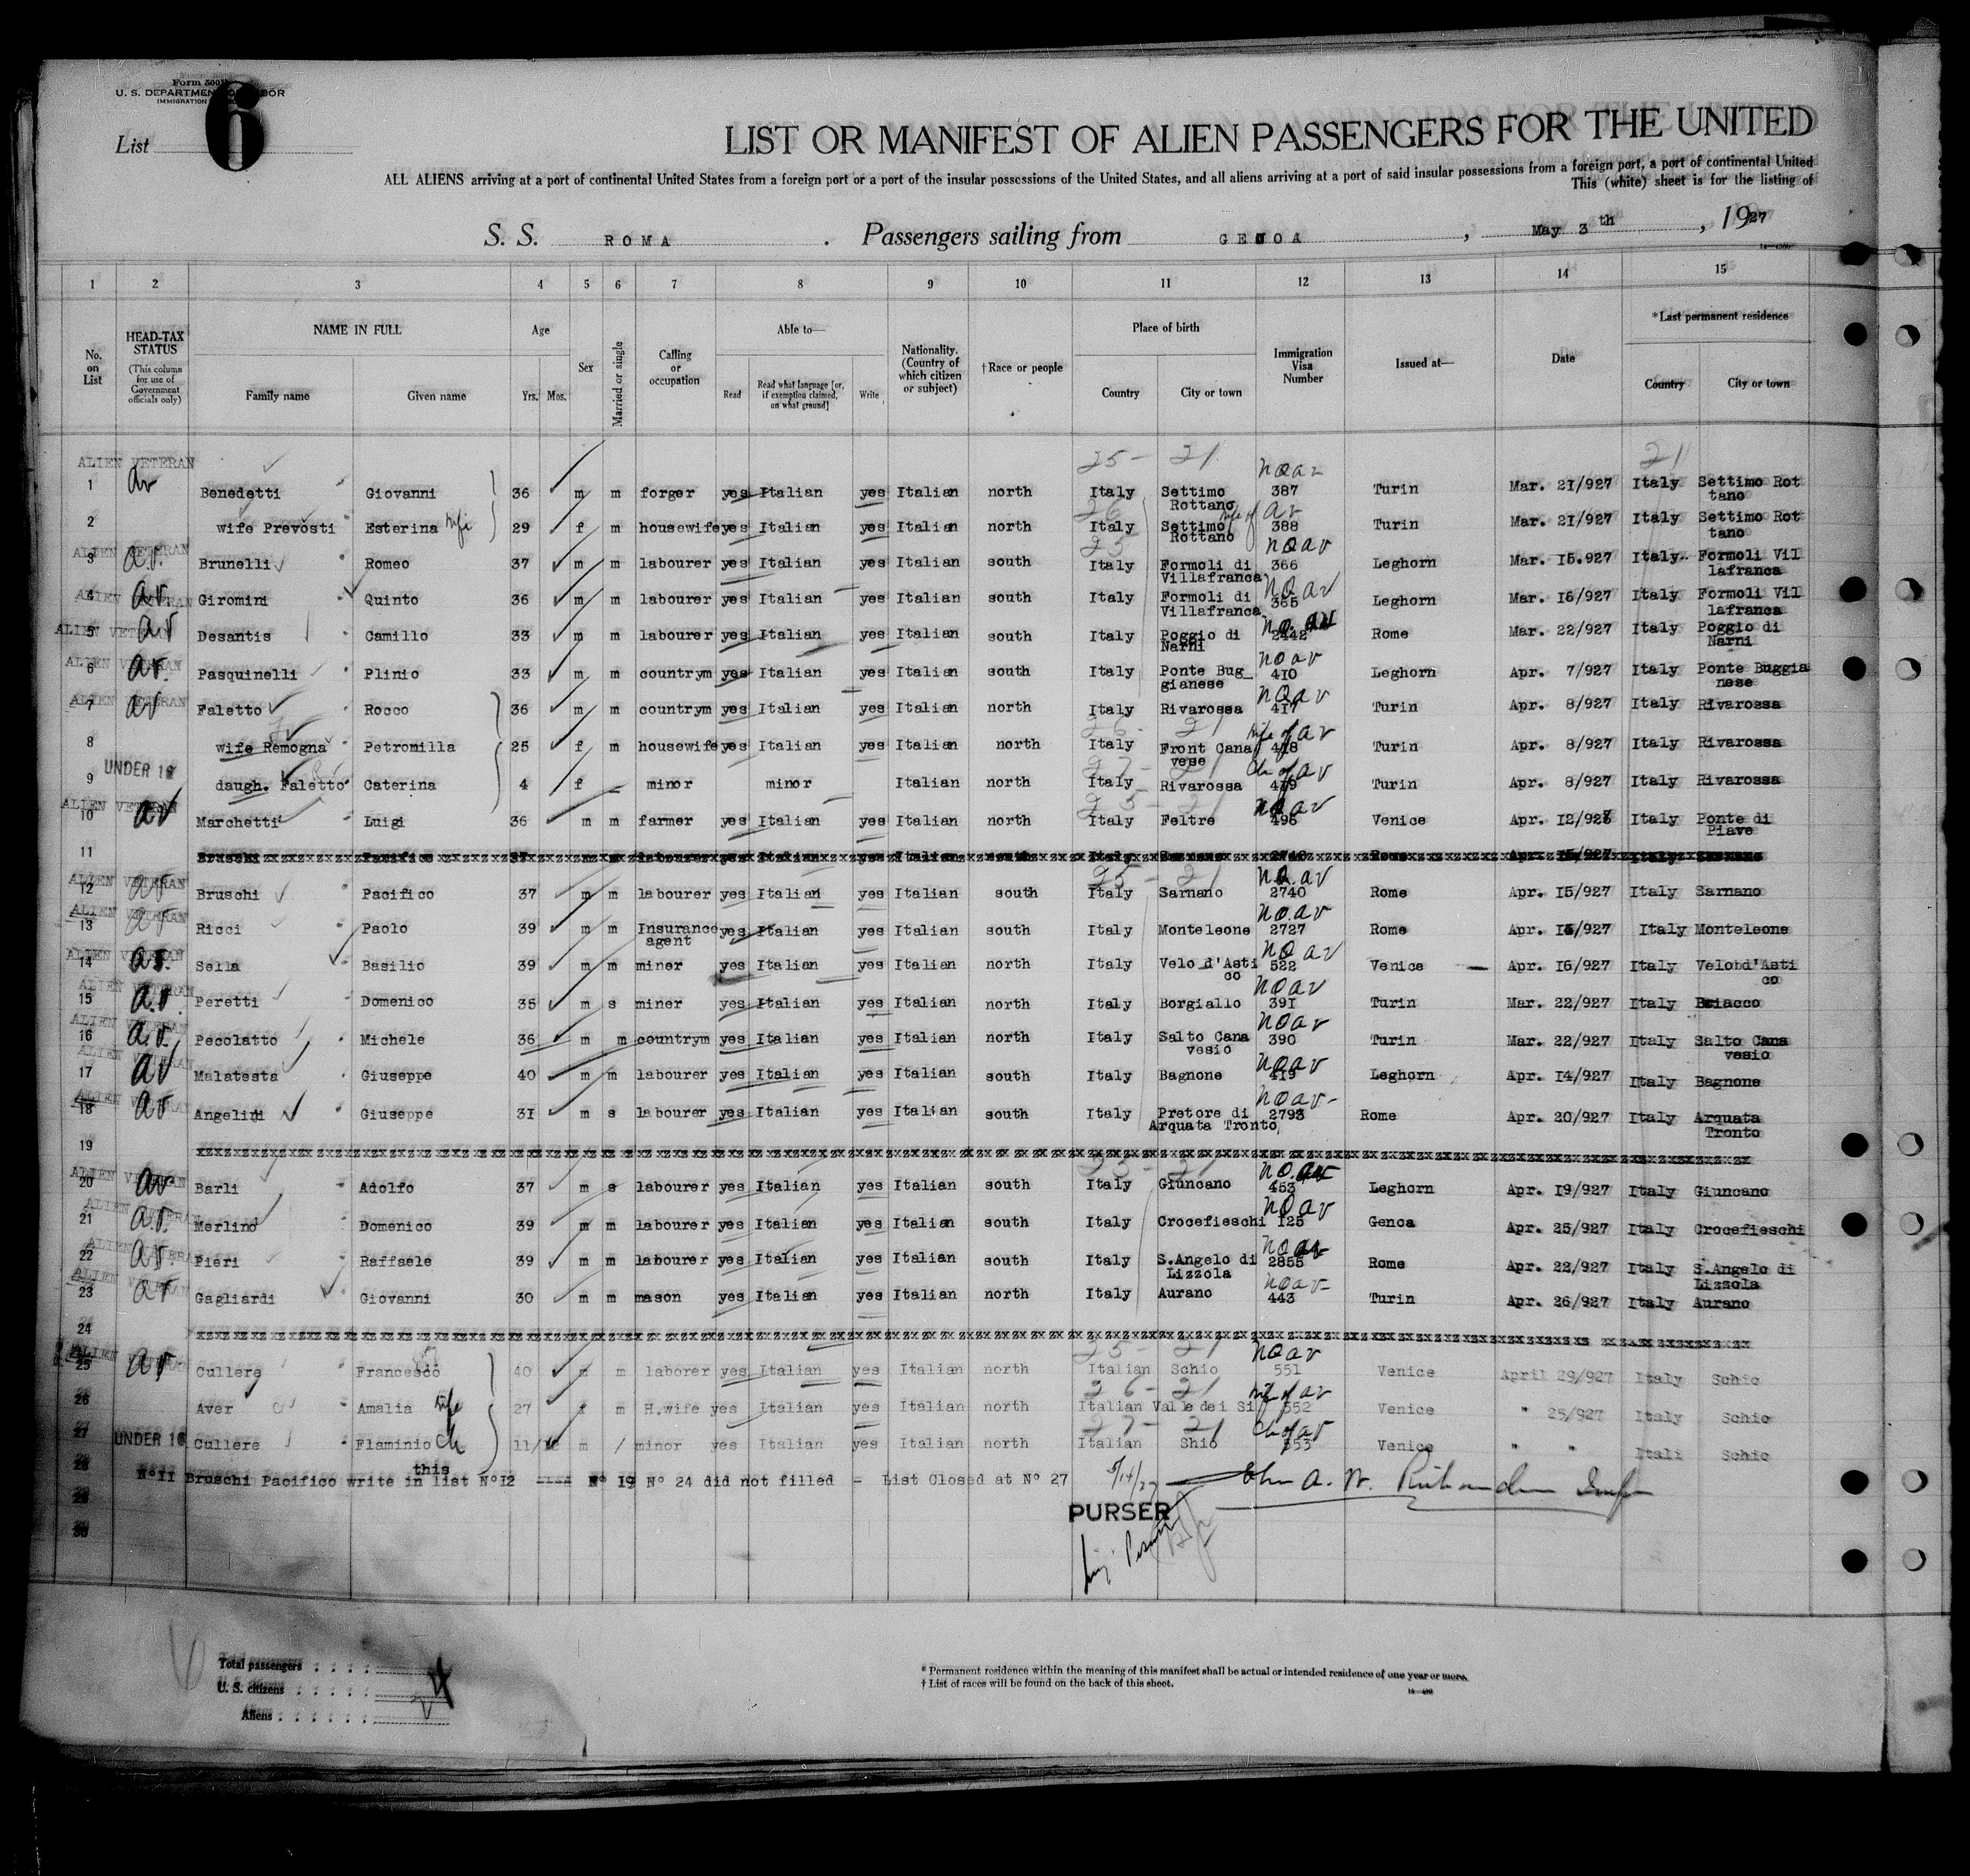 Form 500
U. S. DEPARTMENT OF LABOR
IMMIGRATION
List 6
LIST OR MANIFEST OF ALIEN PASSENGERS FOR THE UNITED
ALL ALIENS arriving at a port of continental United States from a foreign port or a port of the insular possessions of the United States, and all aliens arriving at a port of said insular possessions from a foreign port, a port of continental United
This (white) sheet is for the listing of
S. S. ROMA . Passengers sailing from GENOA , May 3th , 1927
1 2 3 4 5 6 7 8 9 10 11 12 13 14 15
No. on List
HEAD-TAX STATUS (This column for use of Government officials only)
NAME IN FULL Family name Given name
Age Yrs. Mos.
Sex
Married or single
Calling or occupation
Able to— Read Read what language [or, if exemption claimed, on what ground] Write
Nationality. (Country of which citizen or subject)
† Race or people
Place of birth Country City or town
Immigration Visa Number
Issued at—
Date
*Last permanent residence Country City or town
25 - 21 21
ALIEN VETERAN av noav
1 Benedetti Giovanni 36 m m forger yes Italian yes Italian north Italy Settimo Rottano 387 Turin Mar. 21/927 Italy Settimo Rot tano
26 wife of av
2 wife Prevosti Esterina wife 29 f m housewife yes Italian yes Italian north Italy Settimo Rottano 388 Turin Mar. 21/927 Italy Settimo Rot tano
ALIEN VETERAN av. 25 noav
3 Brunelli Romeo 37 m m labourer yes Italian yes Italian south Italy Formoli di Villafranca 366 Leghorn Mar. 15.927 Italy Formoli Vil lafranca
ALIEN VETERAN av. noav
4 Giromini Quinto 36 m m labourer yes Italian yes Italian south Italy Formoli di Villafranca 365 Leghorn Mar. 16/927 Italy Formoli Vil lafranca
ALIEN VETERAN av no. av
5 Desantis Camillo 33 m m labourer yes Italian yes Italian south Italy Poggio di Narni 2442 Rome Mar. 22/927 Italy Poggio di Narni
ALIEN VETERAN av. noav
6 Pasquinelli Plinio 33 m m countrym yes Italian yes Italian south Italy Ponte Bug_ gianese 410 Leghorn Apr. 7/927 Italy Ponte Buggia nese
ALIEN VETERAN av noav
7 Faletto Rocco 36 m m countrym yes Italian yes Italian north Italy Rivarossa 417 Turin Apr. 8/927 Italy Rivarossa
26 - 21 wife of av
8 wife Remogna Petronilla 25 f m housewife yes Italian yes Italian north Italy Front Cana vese 418 Turin Apr. 8/927 Italy Rivarossa
UNDER 16 27 - 21 Ch of av
9 daugh. Faletto Caterina 4 f _ minor minor Italian north Italy Rivarossa 419 Turin Apr. 8/927 Italy Rivarossa
ALIEN VETERAN av 25 - 21 noav
10 Marchetti Luigi 36 m m farmer yes Italian yes Italian north Italy Feltre 496 Venice Apr. 12/927 Italy Ponte di Piave
11 Bruschi Pacifico 37 m m labourer yes Italian yes Italian south Italy Sarnano 2740 Rome Apr. 15/927 Italy Sarnano
ALIEN VETERAN av 25 - 21 no.av
12 Bruschi Pacifico 37 m m labourer yes Italian yes Italian south Italy Sarnano 2740 Rome Apr. 15/927 Italy Sarnano
ALIEN VETERAN av no.av
13 Ricci Paolo 39 m m Insurance agent yes Italian yes Italian south Italy Monteleone 2727 Rome Apr. 15/927 Italy Monteleone
ALIEN VETERAN av. noav
14 Sella Basilio 39 m m miner yes Italian yes Italian north Italy Velo d'Asti co 522 Venice Apr. 16/927 Italy Velo d'Asti co
ALIEN VETERAN a.v. noav
15 Peretti Domenico 35 m s miner yes Italian yes Italian north Italy Borgiallo 391 Turin Mar. 22/927 Italy
ALIEN VETERAN a.v. noav
16 Pecolatto Michele 36 m m countrym yes Italian yes Italian north Italy Salto Cana vesio 390 Turin Mar. 22/927 Italy Salto Cana vesio
ALIEN VETERAN av noav
17 Malatesta Giuseppe 40 m m labourer yes Italian yes Italian south Italy Bagnone 419 Leghorn Apr. 14/927 Italy Bagnone
ALIEN av noav-
18 Angelini Giuseppe 31 m s labourer yes Italian yes Italian south Italy Pretore di Arquata Tronto 2793 Rome Apr. 20/927 Italy Arquata Tronto
19
ALIEN VETERAN av 25 - 21 no.av
20 Barli Adolfo 37 m s labourer yes Italian yes Italian south Italy Giuncano 453 Leghorn Apr. 19/927 Italy Giuncano
ALIEN VETERAN a.v. noav
21 Merlino Domenico 39 m m labourer yes Italian yes Italian south Italy Crocefieschi 125 Genoa Apr. 25/927 Italy Crocefieschi
ALIEN VETERAN av. noav
22 Pieri Raffaele 39 m m labourer yes Italian yes Italian south Italy S.Angelo di Lizzola 2855 Rome Apr. 22/927 Italy S.Angelo di Lizzola
ALIEN VETERAN av noav-
23 Gagliardi Giovanni 30 m m mason yes Italian yes Italian north Italy Aurano 443 Turin Apr. 26/927 Italy Aurano
24
ALIEN VETERAN av 25 - 21 noav
25 Cullere Francesco 40 m m laborer yes Italian yes Italian north Italian Schio 551 Venice April 29/927 Italy Schio
26 - 21 wife of av
26 Aver Amalia wife 27 f m H.wife yes Italian yes Italian north Italian Valle dei Si 552 Venice " 25/927 Italy Schio
27 - 21 Ch of av
27 UNDER 16 Cullere Flaminio Ch 11/12 m / minor yes Italian yes Italian north Italian Shio 553 Venice " " Itali Schio
28 N°11 Bruschi Pacifico write in this list N°12 ---- N° 19 N° 24 did not filled - List Closed at N° 27 5/14/27
29
30
PURSER
Total passengers
U. S. citizens
Aliens
24
* Permanent residence within the meaning of this manifest shall be actual or intended residence of one year or more.
† List of races will be found on the back of this sheet.